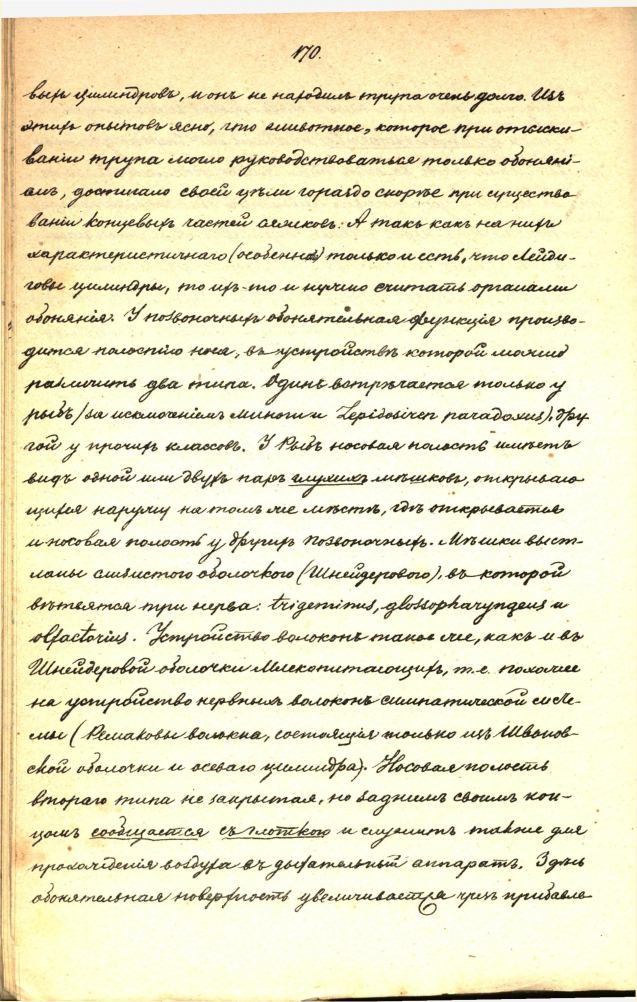 170.
выхъ цилиндровъ, и онъ не находилъ трупа очень долго. Изъ
этихъ опытовъ ясно, что животное, которое при отыски-
ваніи трупа могло руководствоваться только обоняні-
емъ, достигало своей цѣли гораздо скорѣе при существо
ваніи концевыхъ частей усиковъ. А такъ какъ на нихъ
характеристичнаго (особенно) только и есть, что Лейди-
говы цилиндры, то ихъ-то и нужно считать органами
обонянія. У позвоночныхъ обонятельная функція произво-
дится полостію носа, въ устройствѣ которой можно
различить два типа. Одинъ встрѣчается только у
рыбъ (за исключеніемъ миноги и Lepidosiren paradoxus), дру
гой у прочихъ классовъ. У Рыбъ носовая полость имѣетъ
видъ одной или двухъ паръ глухихъ мѣшковъ, открываю
щихся наружу на томъ же мѣстѣ, гдѣ открывается
и носовая полость у другихъ позвоночныхъ. Мѣшки выст-
ланы слизистого оболочкого (Шнейдерового), въ которой
вѣтвятся три нерва: trigeminus, glossopharyngeus и
olfactorius. Устройство волоконъ такое же, какъ и въ
Шнейдеровой оболочки Млекопитающихъ, т.е. похожее
на устройство нервныхъ волоконъ симпатической систе-
мы (Ремаковы волокна, состоящія только изъ Шванов-
ской оболочки и осеваго цилиндра). Носовая полость
втораго типа не закрытая, но заднимъ своимъ кон-
цомъ сообщается съ глоткою и служитъ также для
прохожденія воздуха въ дыхательный аппаратъ. Здѣсь
обонятельная поверхность увеличивается чрезъ прибавле